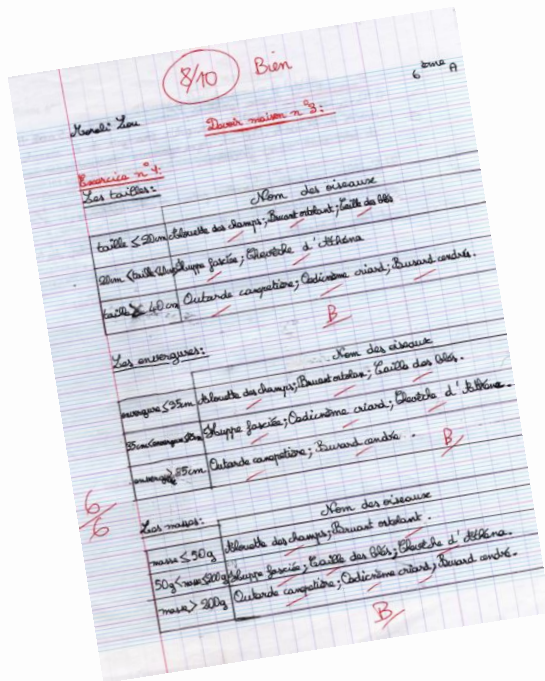 8/10 Bien
6ème A
Merali Lou
Devoir maison n°3:
Exercice n°1:
Les tailles:
Nom des oiseaux
taille ≤ 20cm Alouette des champs; Bruant ortolant; Caille des blés
20cm < taille Huppe fasciée; Chevêche d'Athéna
taille ≥ 40cm Outarde canepetière; Oedicnème criard; Busard cendré.
B
Les envergures:
Nom des oiseaux
envergure ≤ 35cm Alouette des champs; Bruant ortolan; Caille des blés.
35cm < envergure Huppe fasciée; Oedicnème criard; Chevêche d'Athéna.
envergure 85cm Outarde canepetière; Busard cendré.
B
6/6
Les masses:
Nom des oiseaux
masse ≤ 50g Alouette des champs; Bruant ortolant.
50g < masse ≤ 200g Huppe fasciée; Caille des blés; Chevêche d'Athéna.
masse > 200g Outarde canepetière; Oedicnème criard; Busard cendré.
B